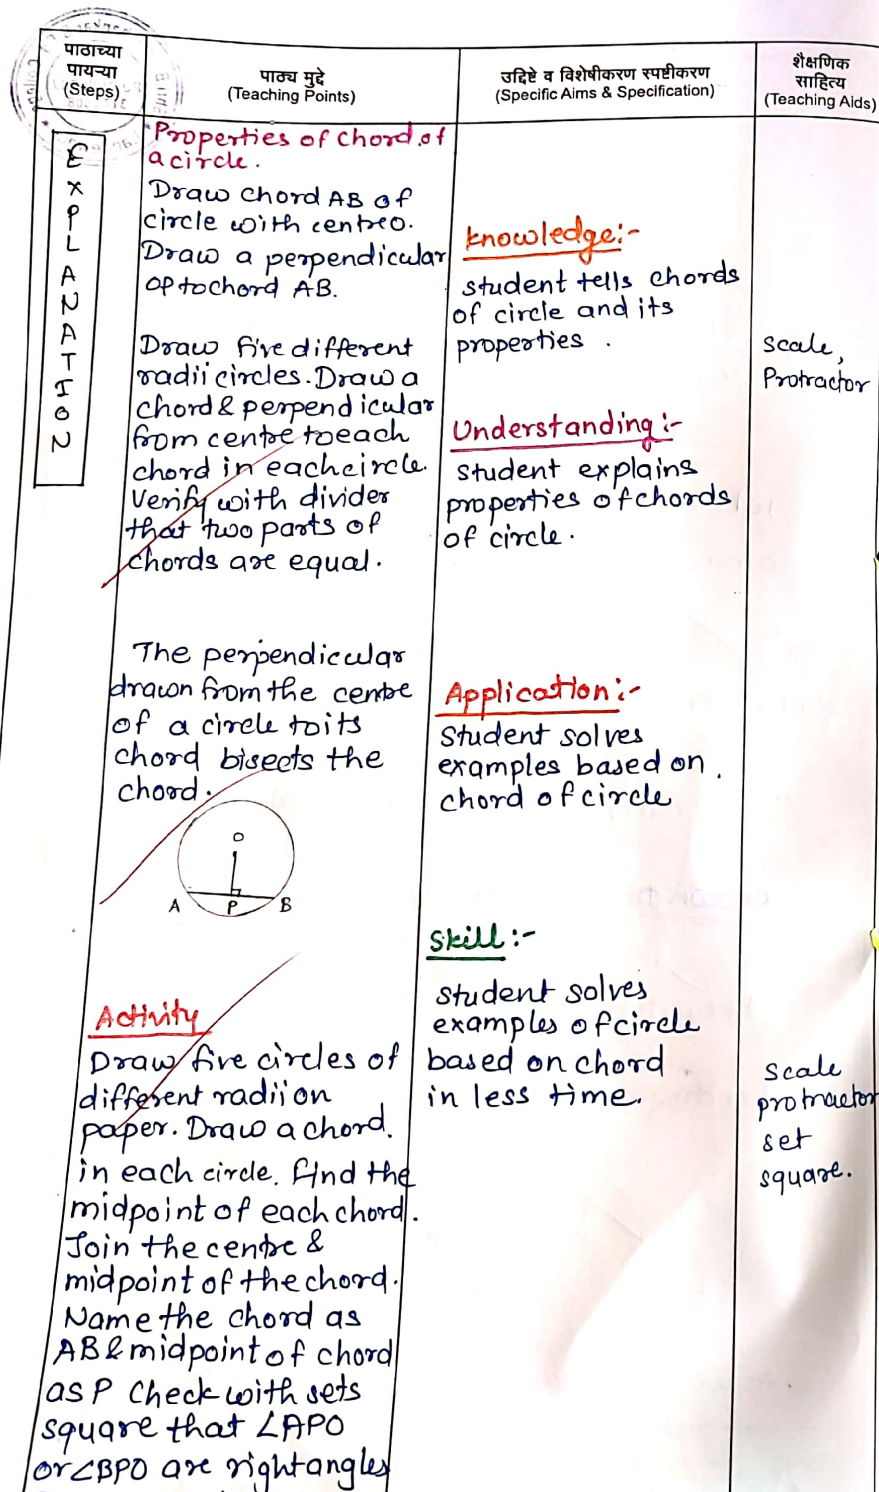 पाठाच्या
पायऱ्या
(Steps)
पाठ्य मुद्दे
(Teaching Points)
उद्दिष्टे व विशेषीकरण स्पष्टीकरण
(Specific Aims & Specification)
शैक्षणिक
साहित्य
(Teaching Aids)
EXPLANATION
Properties of chord of
a circle.
Draw chord AB of
circle with centre o.
Draw a perpendicular
OP to chord AB.
Draw five different
radii circles. Draw a
chord & perpendicular
from centre to each
chord in each circle.
Verify with divider
that two parts of
chords are equal.
The perpendicular
drawn from the centre
of a circle to its
chord bisects the
chord.
O
A P B
Activity
Draw five circles of
different radii on
paper. Draw a chord.
in each circle. find the
midpoint of each chord.
Join the centre &
midpoint of the chord.
Name the chord as
AB & midpoint of chord
as P Check with sets
square that ∠APO
or ∠BPO are right angles
knowledge:-
student tells chords
of circle and its
properties .
Understanding :-
student explains
properties of chords
of circle.
Application :-
Student solves
examples based on.
chord of circle
Skill :-
student solves
examples of circle
based on chord
in less time.
Scale,
Protractor
Scale
protractor
set
square.